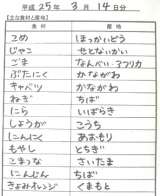 平成 25年 3月 14日
【主な食材と産地】
食材 産地
こめ ほっかいどう
じゃこ せとないかい
ごま なんべい・アフリカ
ぶたにく かながわ
キャベツ かながわ
ねぎ ちば
にら いばらき
しょうが こうち
にんにく あおもり
もやし とちぎ
こまつな さいたま
にんじん ちば
きよみオレンジ くまもと